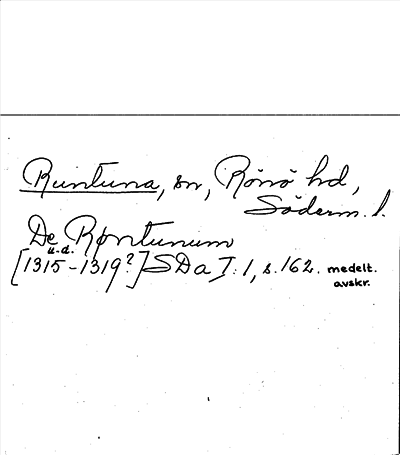 Runtuna, sn, Rönö hd,
Söderm. l.
De Røntunum
u.d.
[1315-1319?] SDa I:1, s.162. medelt.
avskr.